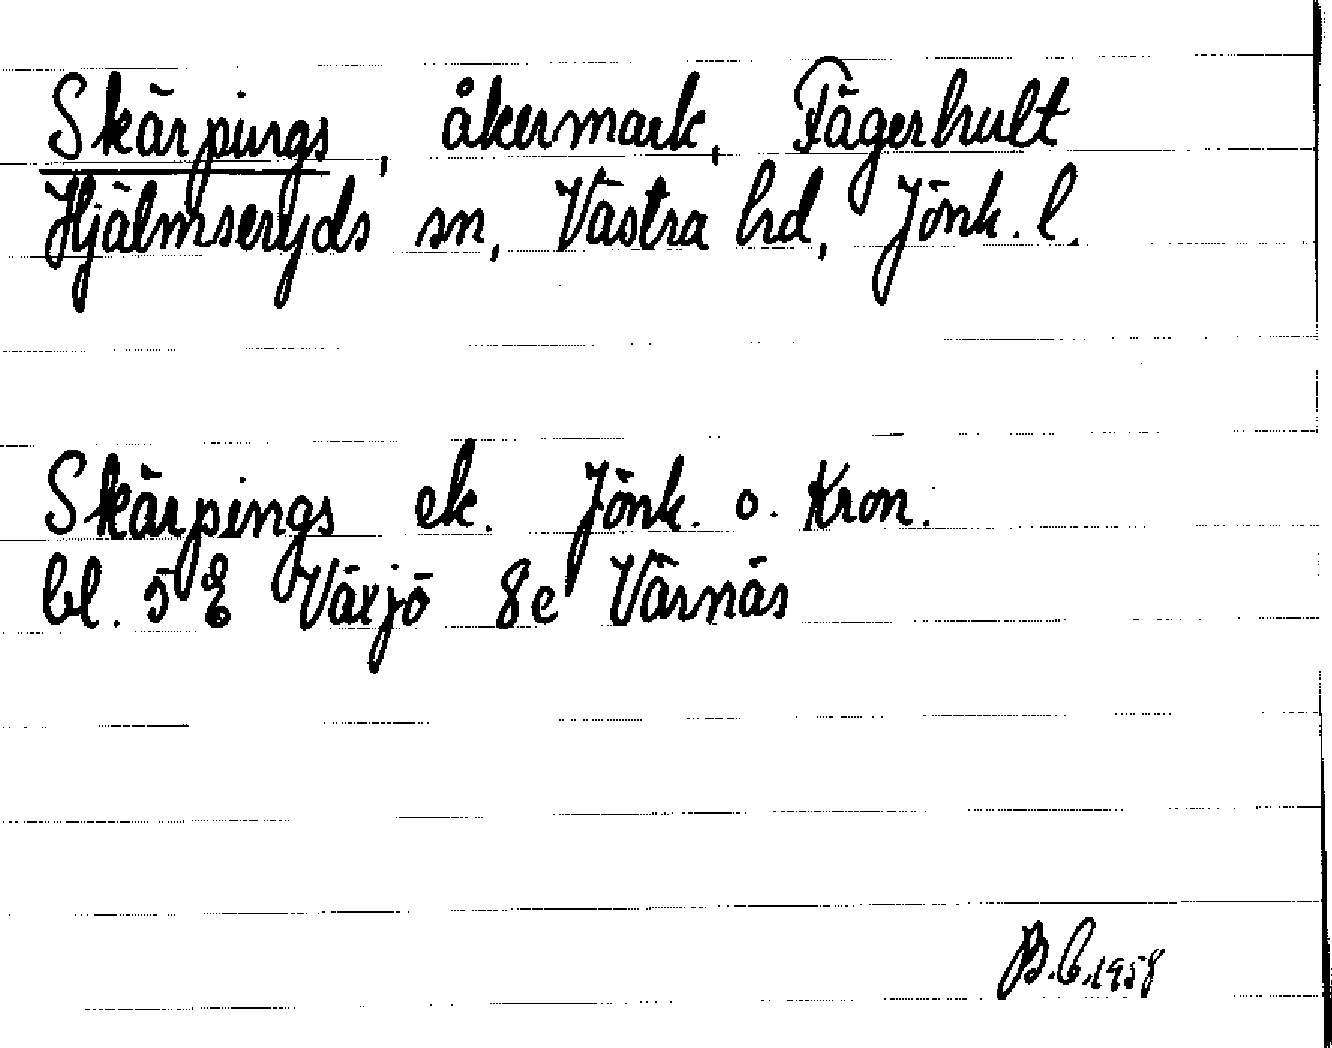 Skärpings, åkermark, Fägerhult
Hjälmseryds sn, Västra hd, Jönk. l.
Skärpings ek. Jönk. o. Kron.
bl. 5 E Växjö 8e Värnäs
B.C. 1958